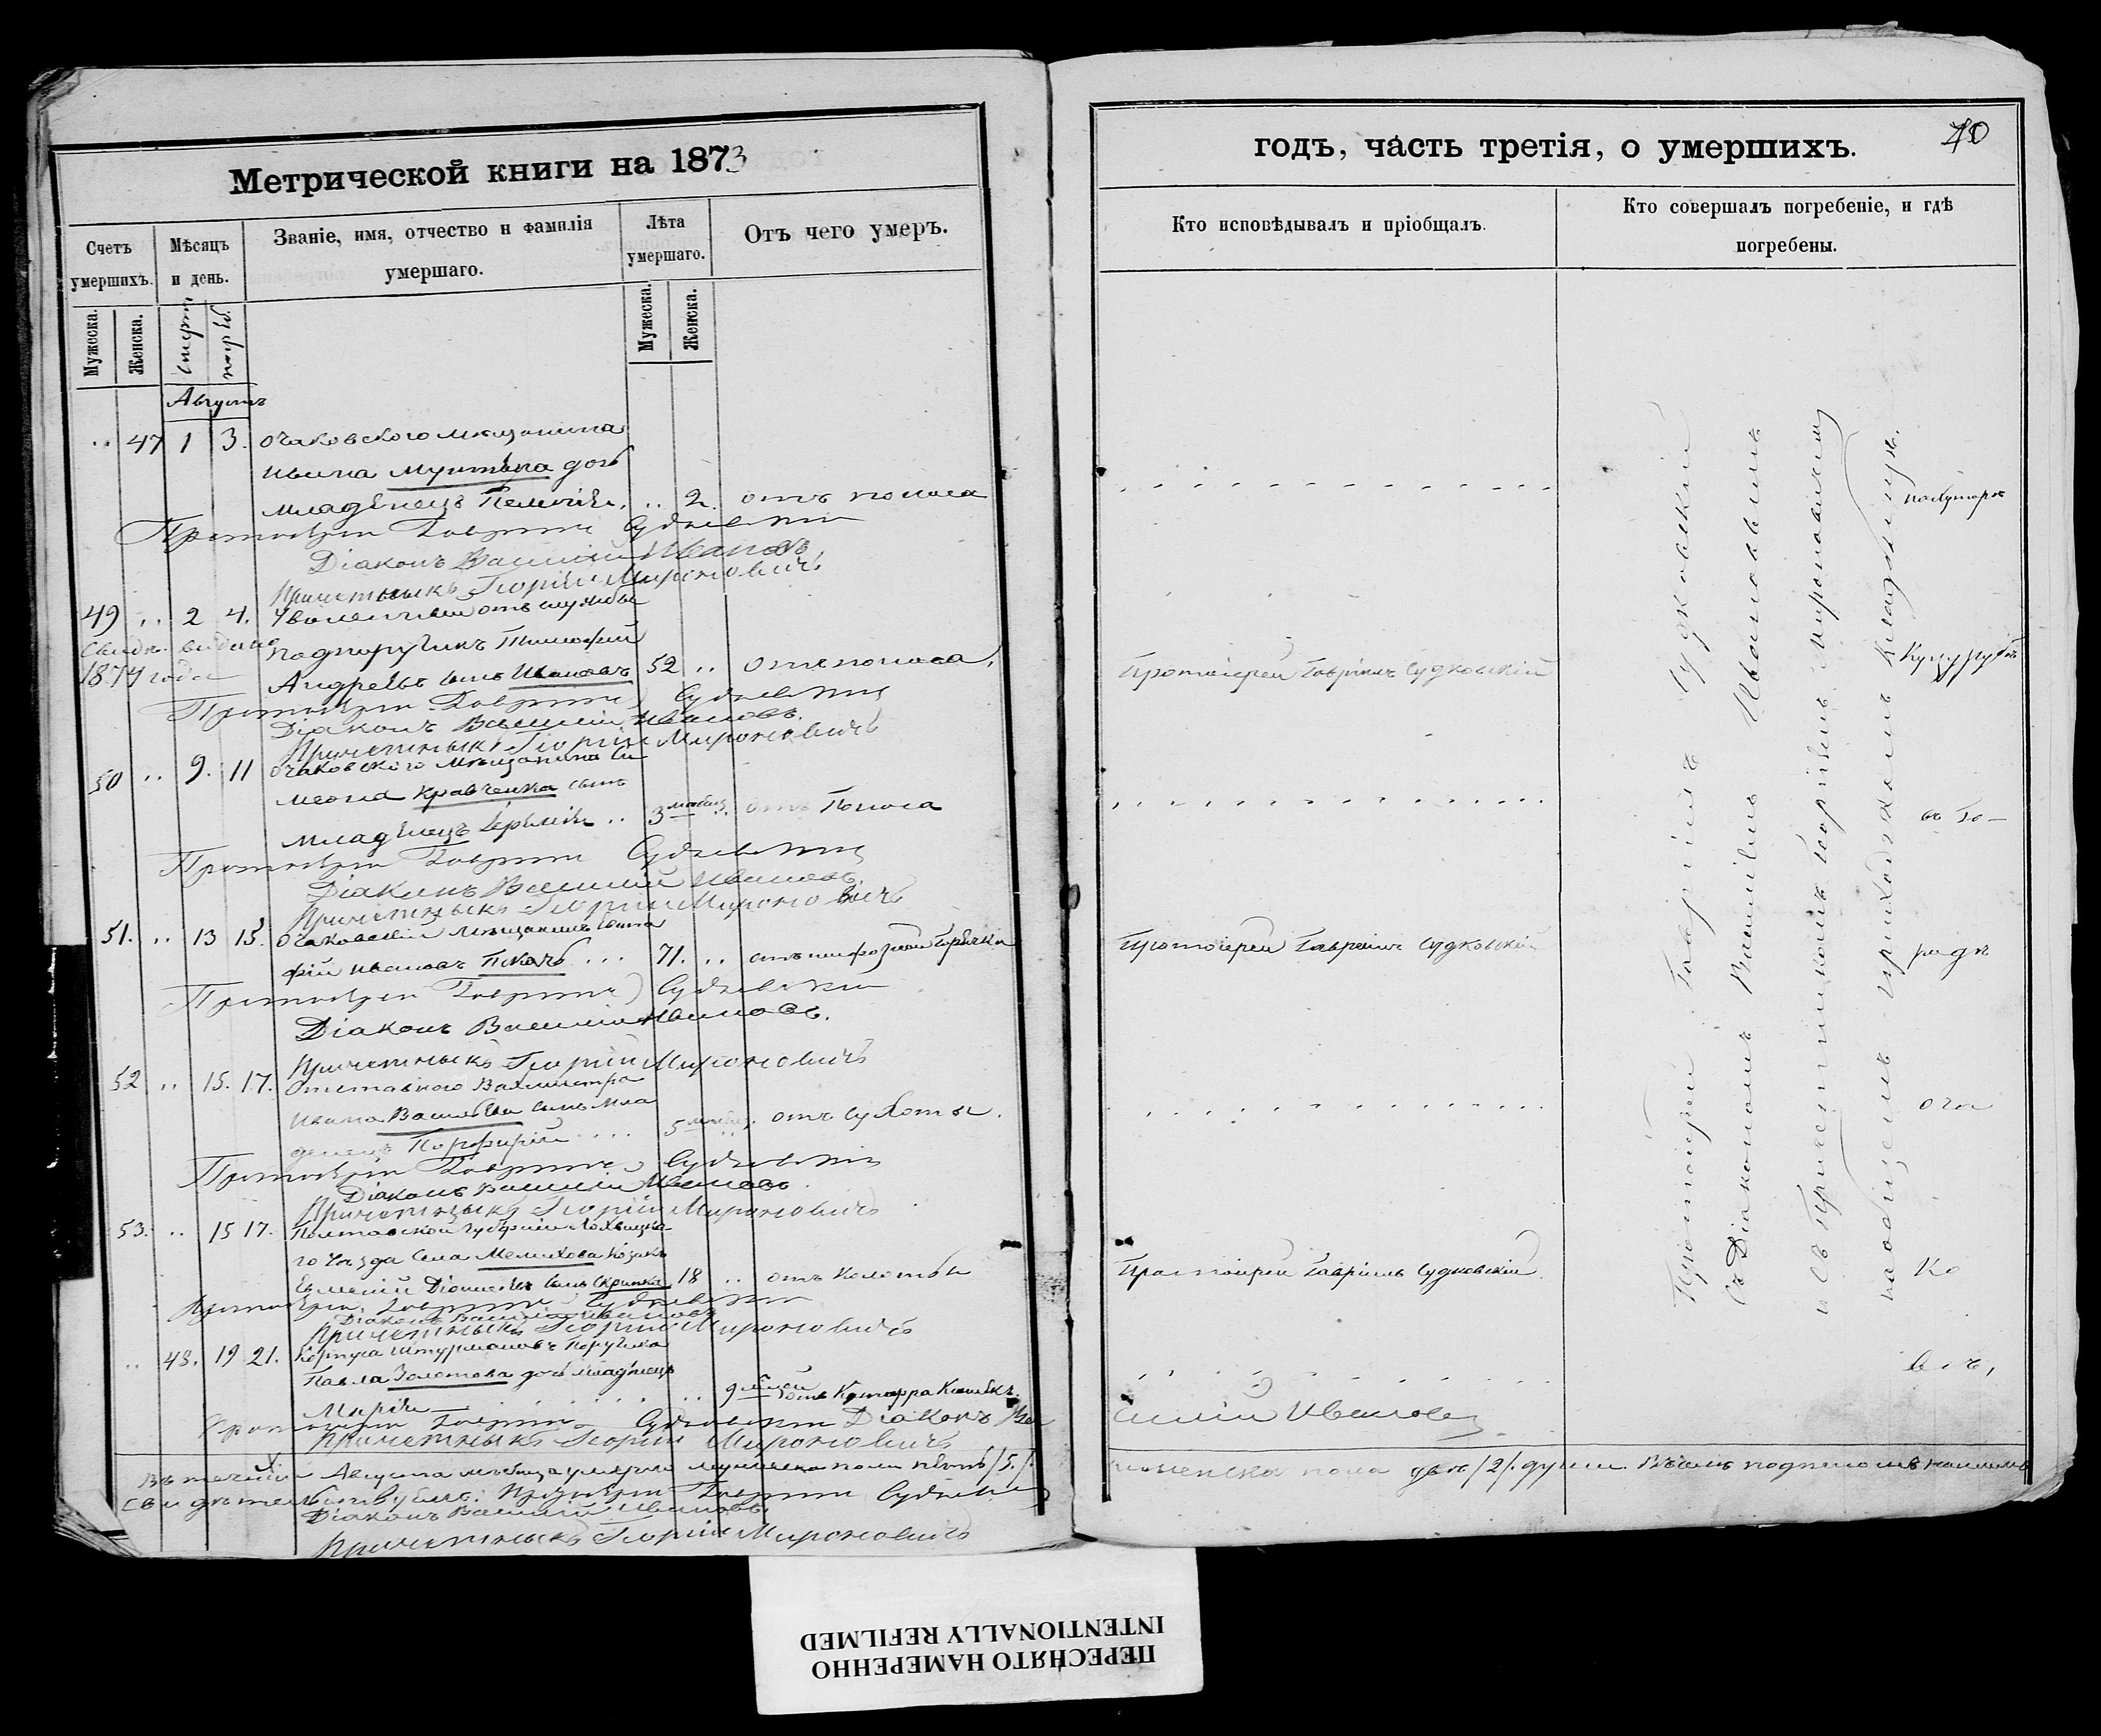 Метрической книги на 1873
Счетъ умершихъ.
Мѣсяцъ и день.
Званіе, имя, отчество и фамилія умершаго.
Лѣта умершаго.
Отъ чего умеръ.
Мужеска.
Женска.
смерти
погреб.
Мужеска.
Женска.
Августъ
.. 47 1 3. Очаковского мѣщанина
Ивана дочь
младенецъ .. 2. отъ поноса
Протоіерей Гавріилъ Судковскій
Діаконъ Василій Ивановъ
Причетныкъ Георгій Мироновичъ
49 .. 2 4. Уволенный отъ службы
Свидѣ. выдано
1874 года
подпоручикъ Тимофей
Андреевъ сынъ Ивановъ 52 .. отъ поноса.
Протоіерей Гавріилъ Судковскій
Діаконъ Василій Ивановъ.
Причетныкъ Георгій Мироновичъ
50 .. 9. 11 Очаковского мѣщанина Си
меона Кравченка сынъ
младенецъ .. 3 мѣсяц. отъ поноса
Протоіерей Гавріилъ Судковскій
Діаконъ Василій Ивановъ.
Причетныкъ Георгій Мироновичъ
51. .. 13 15. Очаковскій мѣщанинъ
фій Ивановъ Ткачъ ... 71. .. отъ горячки
Протоіерей Гавріилъ Судковскій
Діаконъ Василій Ивановъ.
Причетныкъ Георгій Мироновичъ
52 .. 15. 17. Отставного Вахмистра
Ивана Васильева сынъ мла
денецъ Порфирій .... 5 мѣсяц. отъ сухоты.
Протоіерей Гавріилъ Судковскій
Діаконъ Василій Ивановъ.
Причетныкъ Георгій Мироновичъ
53. .. 15 17. Полтавской губерніи Лохвицка
го уѣзда села Мелихова козакъ
сынъ Скрипка 18 .. отъ
Протоіерей Гавріилъ Судковскій
Діаконъ Василій Ивановъ
Причетныкъ Георгій Мироновичъ
.. 48. 19 21. Корпуса Штурмановъ Поручика
Павла Золотова дочь младенецъ
Марія 9 отъ Катарра Кишекъ.
Протоіерей Гавріилъ Судковскій Діаконъ Ва
Причетныкъ Георгій Мироновичъ
Въ теченіи Августа мѣсяца умерло мужеска пола пять /5./
Свидѣтельствуемъ: Протоіерей Гавріилъ Судковскій
Діаконъ Василій Ивановъ.
Причетныкъ Георгій Мироновичъ
годъ, часть третія, о умершихъ.
Кто исповѣдывалъ и пріобщалъ.
Кто совершалъ погребеніе, и гдѣ погребены.
Протоіерей Гавріилъ Судковскій
Протоіерей Гавріилъ Судковскій
Протоіерей Гавріилъ Судковскій
силій Ивановъ
женска пола двѣ /2/ души. Въ чемъ подписомъ нашимъ
Протоіерей Гавріилъ Судковскій
съ Діакономъ Василіемъ Ивановымъ
и съ Причетникомъ Георгіемъ Мироновичемъ
на общемъ приходскомъ кладбищѣ.
ПЕРЕСНЯТО НАМЕРЕННО
INTENTIONALLY REFILMED